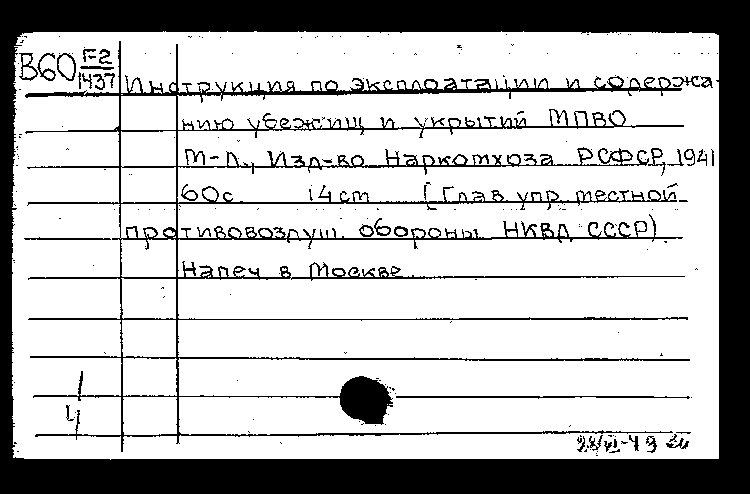 В60 F-2
1437
Инструкция по эксплоатации и содержа-
нию убежищ и укрытий МПВО
М-Л., Изд-во Наркомхоза РСФСР, 1941
60с. 14cm (Глав упр местной
противовоздуш. обороны НКВД СССР)
Напеч в Москве.
28/VI-49